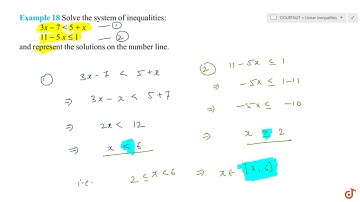 Example 18 Solve the system of inequalities:
3x – 7 < 5 + x — ①
11 – 5x ≤ 1 — ②
and represent the solutions on the number line.
① 3x - 7 < 5 + x
⇒ 3x - x < 5 + 7
⇒ 2x < 12
⇒ x < 6
② 11 - 5x ≤ 1
⇒ -5x ≤ 1 - 11
⇒ -5x ≤ -10
⇒ x ≥ 2
i.e. 2 ≤ x < 6 ⇒ x ∈ [2, 6)